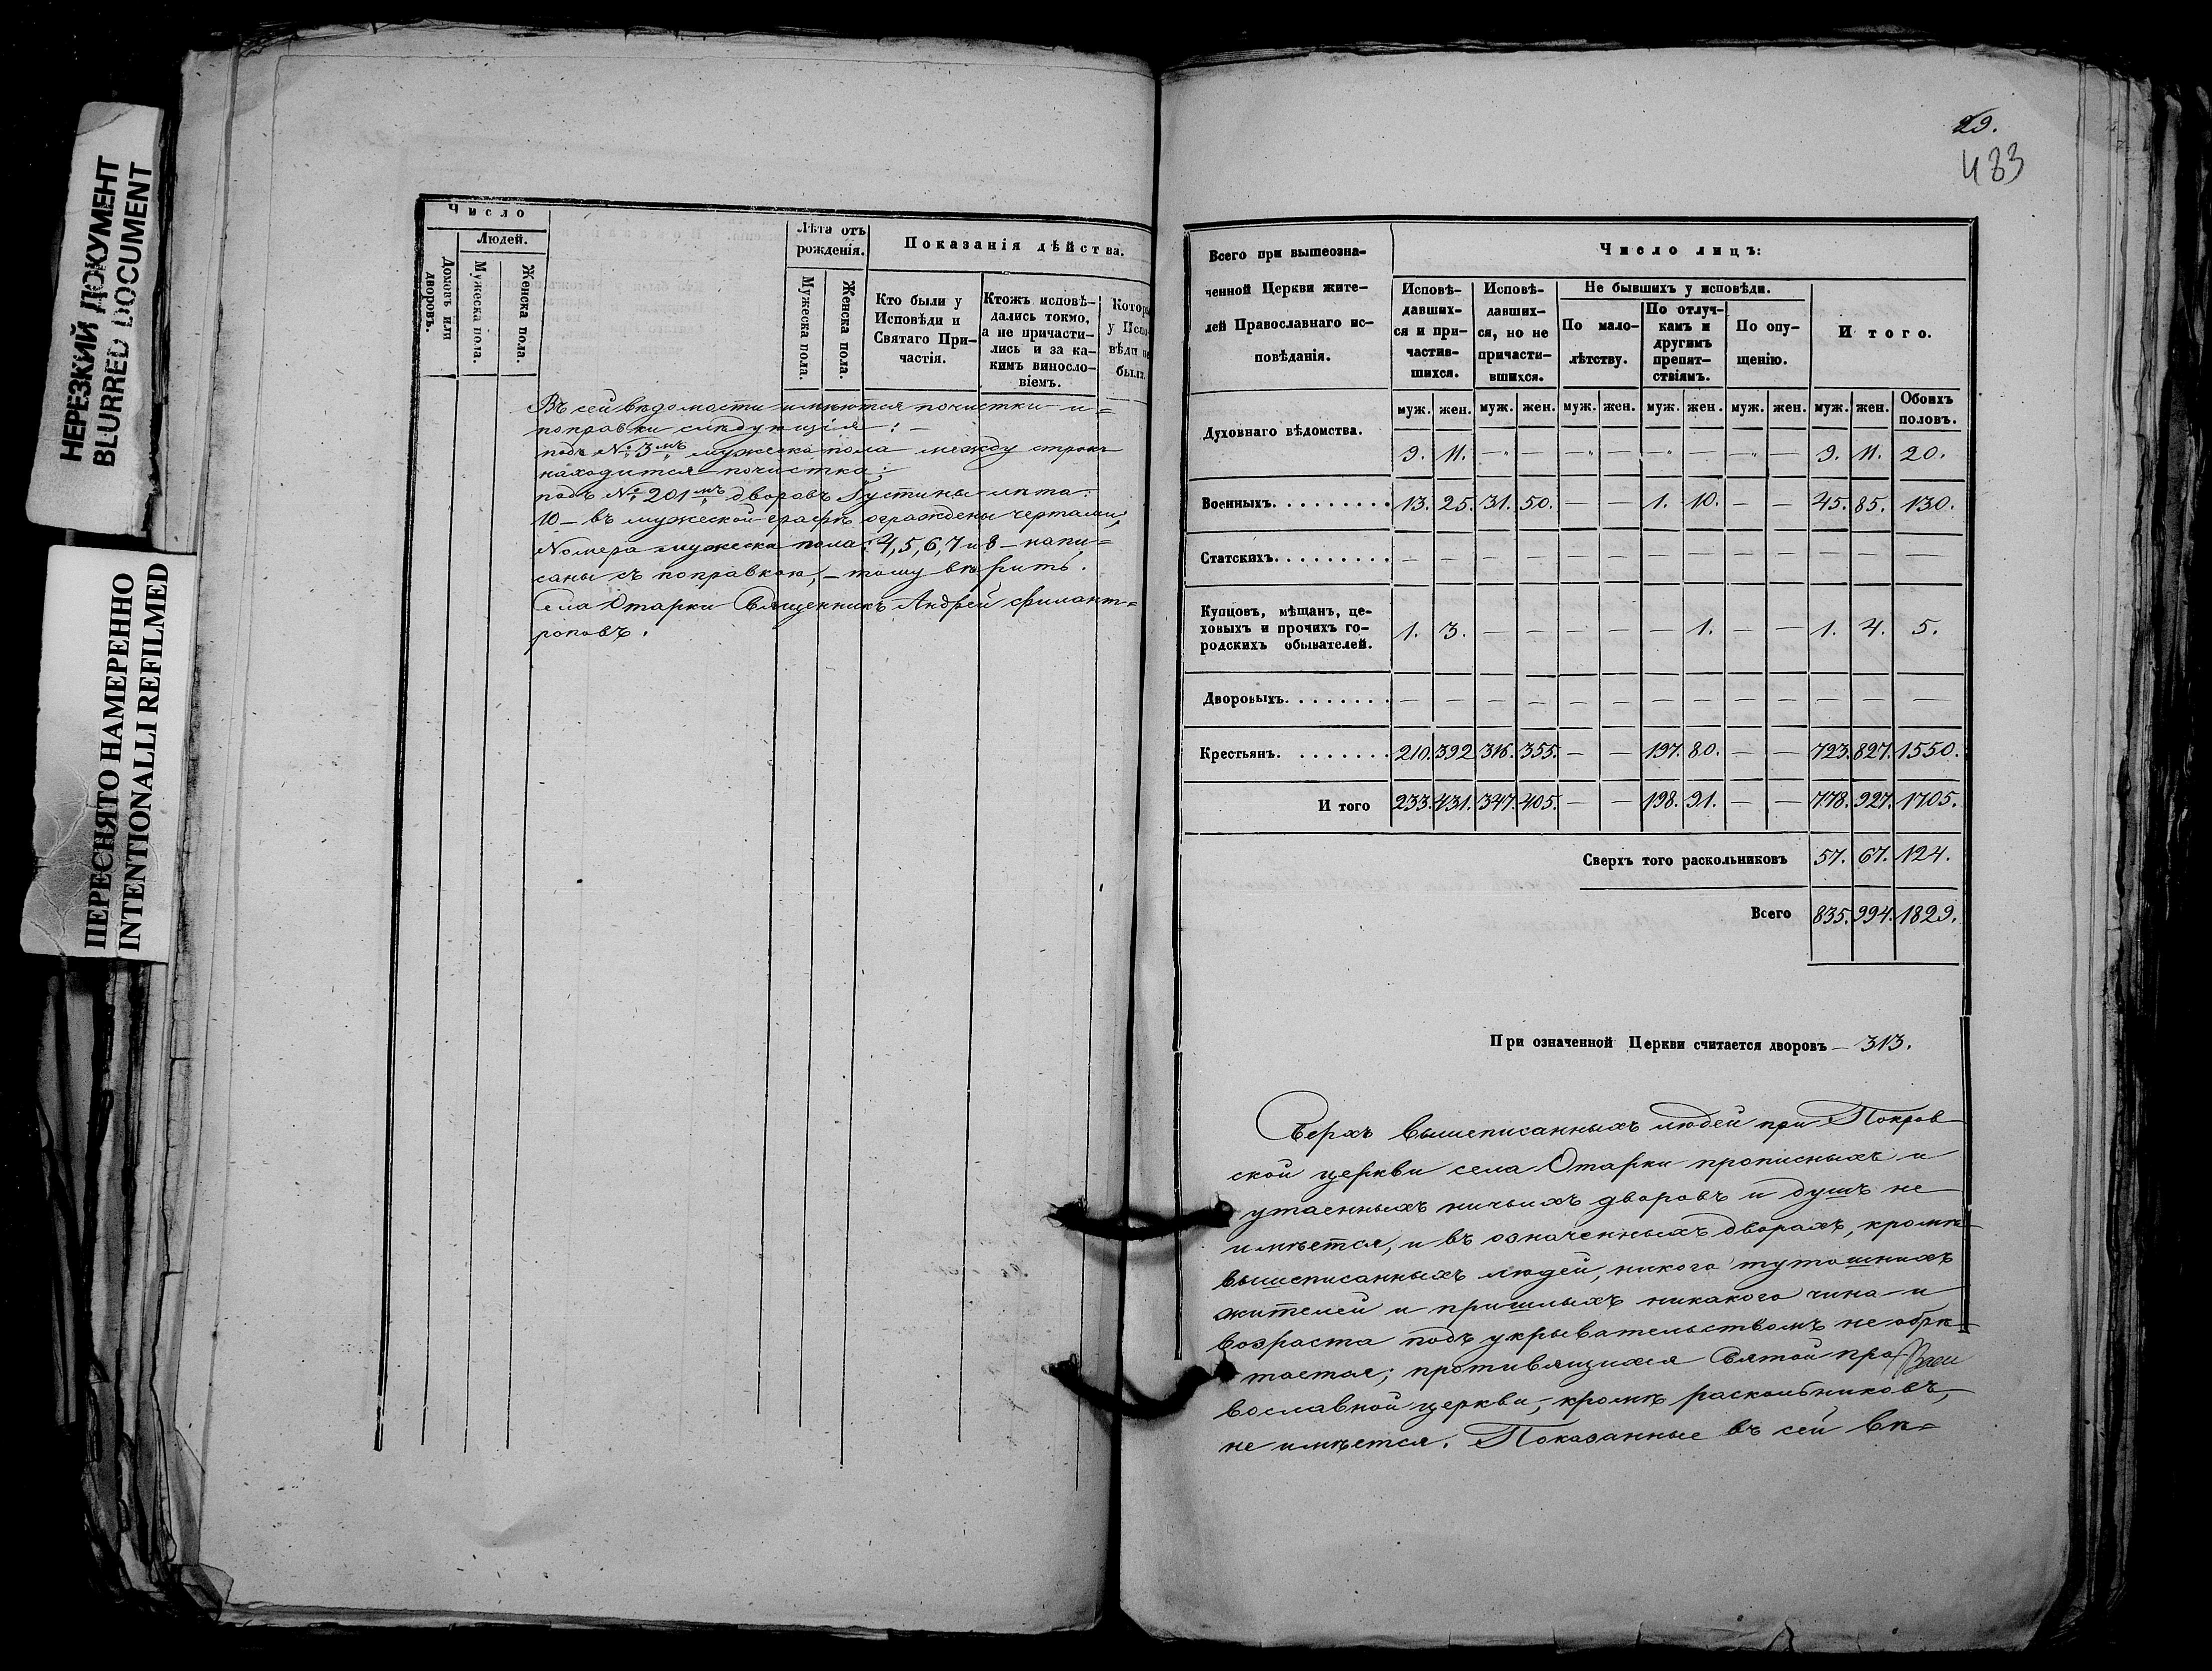 НЕРЕЗКИЙ ДОКУМЕНТ
BLURRED DOCUMENT
ПЕРЕСНЯТО НАМЕРЕННО
INTENTIONALLI REFILMED
Число
Людей.
Домовъ или дворовъ.
Мужеска пола.
Женска пола.
Лѣта отъ рожденія.
Мужеска пола.
Женска пола.
Показанія дѣйства.
Кто были у Исповѣди и Святаго Причастія.
Ктожъ исповѣдались токмо, а не причастились и за какимъ винословіемъ.
Въ сей вѣдомости имѣются почистки и=
поправки слѣдующія: —
подъ № 3мъ мужеска пола между строкъ
находится почистка:
подъ № 201мъ дворовъ Густины лѣта:
10 — въ мужеской графѣ ограждены чертами,
Номера мужеска пола: 4, 5, 6, 7 и 8 — напи=
саны съ поправкою, — тому вѣрить.
Села Отарки Священникъ Андрей Филант=
роповъ.
29.
483
Всего при вышеозначенной Церкви жителей Православнаго исповѣданія.
Число лицъ:
Исповѣдавшихся и причастившихся.
Исповѣдавшихся, но не причастившихся.
Не бывшихъ у исповѣди.
По малолѣтству.
По отлучкамъ и другимъ препятствіямъ.
По опущенію.
Итого.
муж. жен. муж. жен. муж. жен. муж. жен. муж. жен. муж. жен. Обоихъ половъ.
Духовнаго вѣдомства. 9. 11. — — — — — — — — 9. 11. 20.
Военныхъ. 13. 25. 31. 50. — — 1. 10. — — 45. 85. 130.
Статскихъ. — — — — — — — — — — — — —
Купцовъ, мѣщанъ, цеховыхъ и прочихъ городскихъ обывателей. 1. 3. — — — — — 1. — — 1. 4. 5.
Дворовыхъ. — — — — — — — — — — — — —
Крестьянъ. 210. 392. 316. 355. — — 197. 80. — — 723. 827. 1550.
Итого 233. 431. 347. 405. — — 198. 91. — — 778. 927. 1705.
Сверхъ того раскольниковъ 57. 67. 124.
Всего 835. 994. 1829.
При означенной Церкви считается дворовъ — 313.
Сверхъ вышеписанныхъ людей при Покров
ской церкви села Отарки прописныхъ и
утаенныхъ ничьихъ дворовъ и душъ не
имѣется, и въ означенныхъ дворахъ, кромѣ
вышеписанныхъ людей, никого тутошнихъ
жителей и пришлыхъ никакого чина и
возраста подъ укрывательствомъ не обрѣ
тается; противящихся Святой пра
вославной церкви, кромѣ раскольниковъ,
не имѣется. Показанные въ сей вѣ=